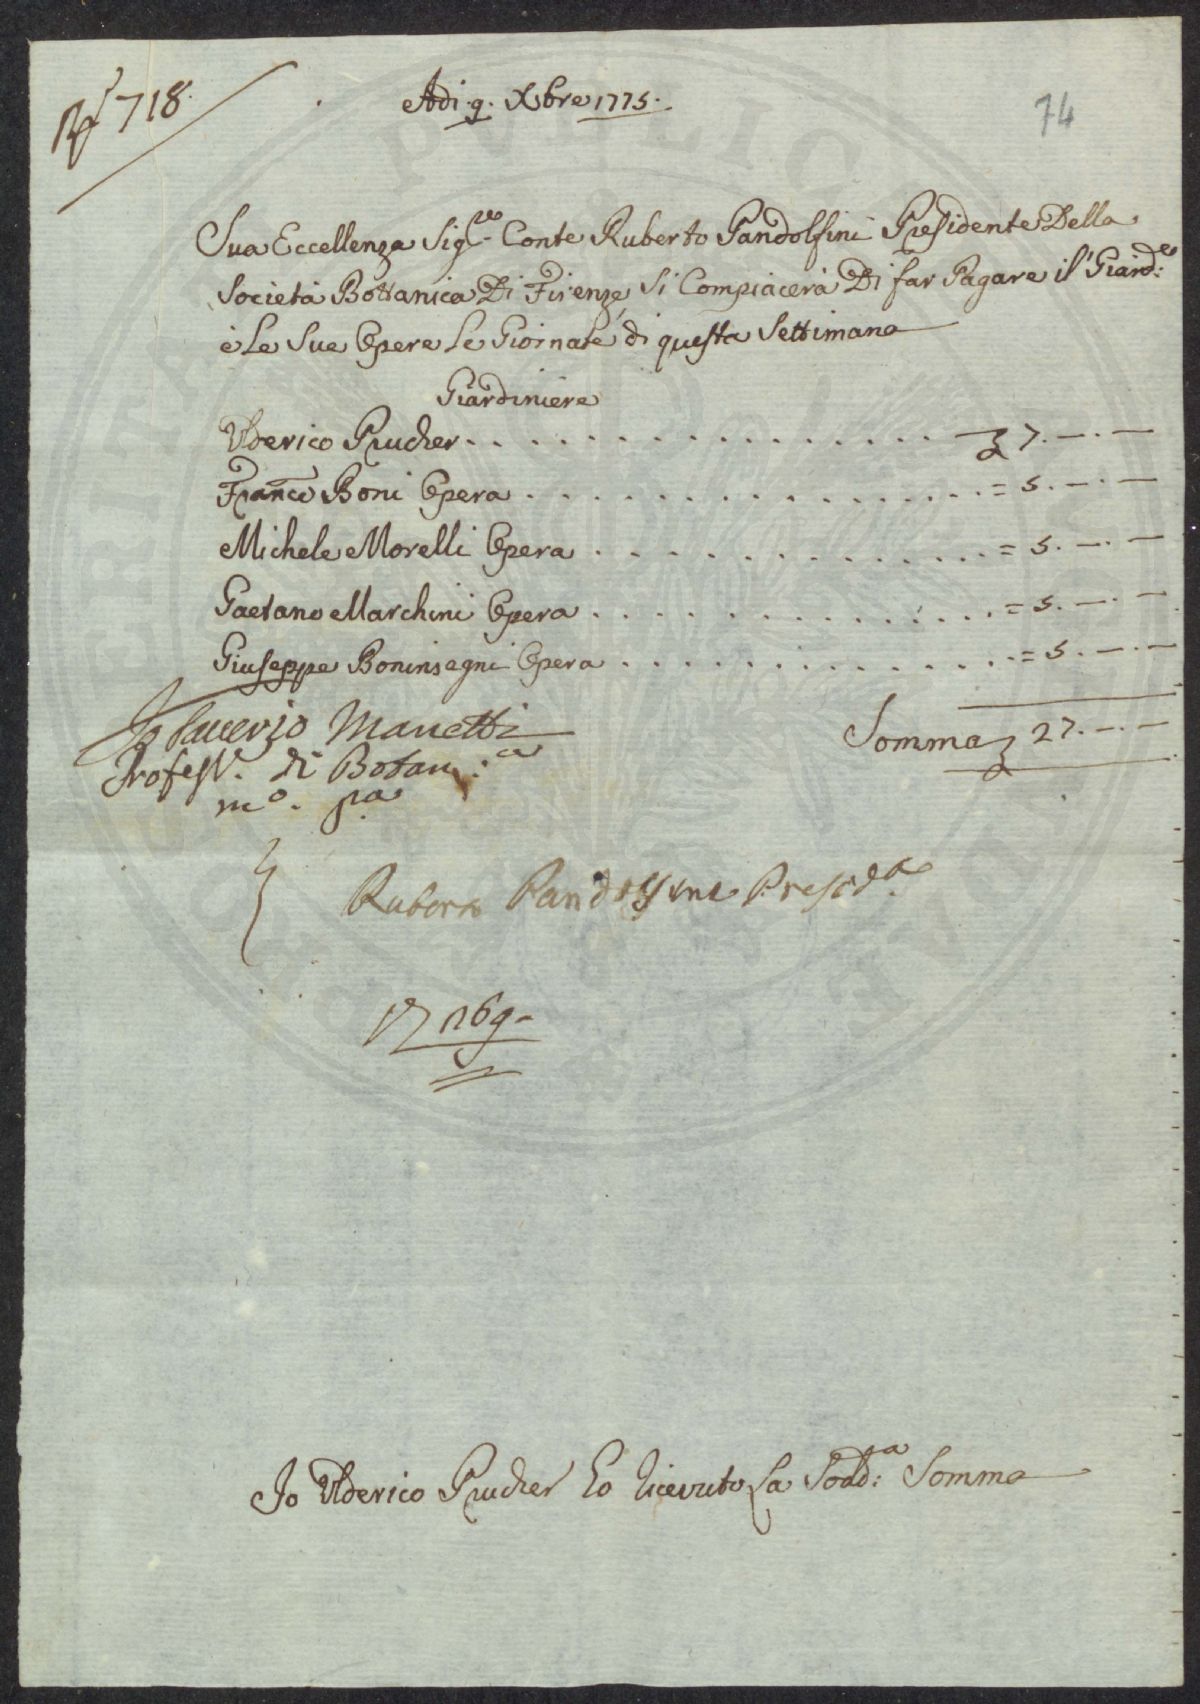 718
Adi 9. Xbre 1775.
74
Sua Eccellenza Sig.re Conte Ruberto Pandolfini Presidente Della
Società Bottanica Di Firenze, Si Compiacerà Di far Pagare il Giard:e
è Le Sue Opere Le Giornate di questa Settimana
Giardiniere
Ulderico Prucher 7.—.—
Franco Boni Opera = 5.—.—
Michele Morelli Opera = 5.—.—
Gaetano Marchini Opera = 5.—.—
Giuseppe Boninsegni Opera = 5.—.—
Somma 27.—.—
Io Saverio Manetti
Profess.e di Botan:ca
mo. pa
Ruberto Pandolfini Presid.e
Io Ulderico Prucher Ho Ricevuto La Sodd:a Somma